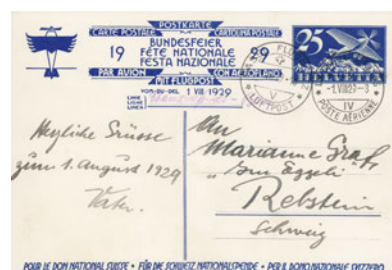 POSTKARTE
CARTE POSTALE
CARTOLINA POSTALE
19 BUNDESFEIER 29
FÊTE NATIONALE
FESTA NAZIONALE
PAR AVION
CON AEROPLANO
MIT FLUGPOST
VON-DU-DEL 1 VIII 1929
LINIE
LIGNE
LINEA
25
HELVETIA
LUFTPOST
V
-1.VIII29-3
IV
POSTE AÉRIENNE
Herzliche Grüsse
zum 1. August 1929
Vater.
An
Marianne Graf
Rebstein
Schweiz
POUR LE DON NATIONAL SUISSE • FÜR DIE SCHWEIZ NATIONALSPENDE • PER IL DONO NAZIONALE SVIZZERO